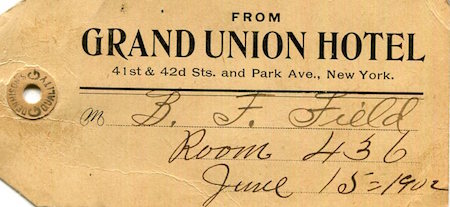 FROM
GRAND UNION HOTEL
41st & 42d Sts. and Park Ave., New York.
M B. F. Field
Room 436
June 15=1902
DENNISON'S QUALITY